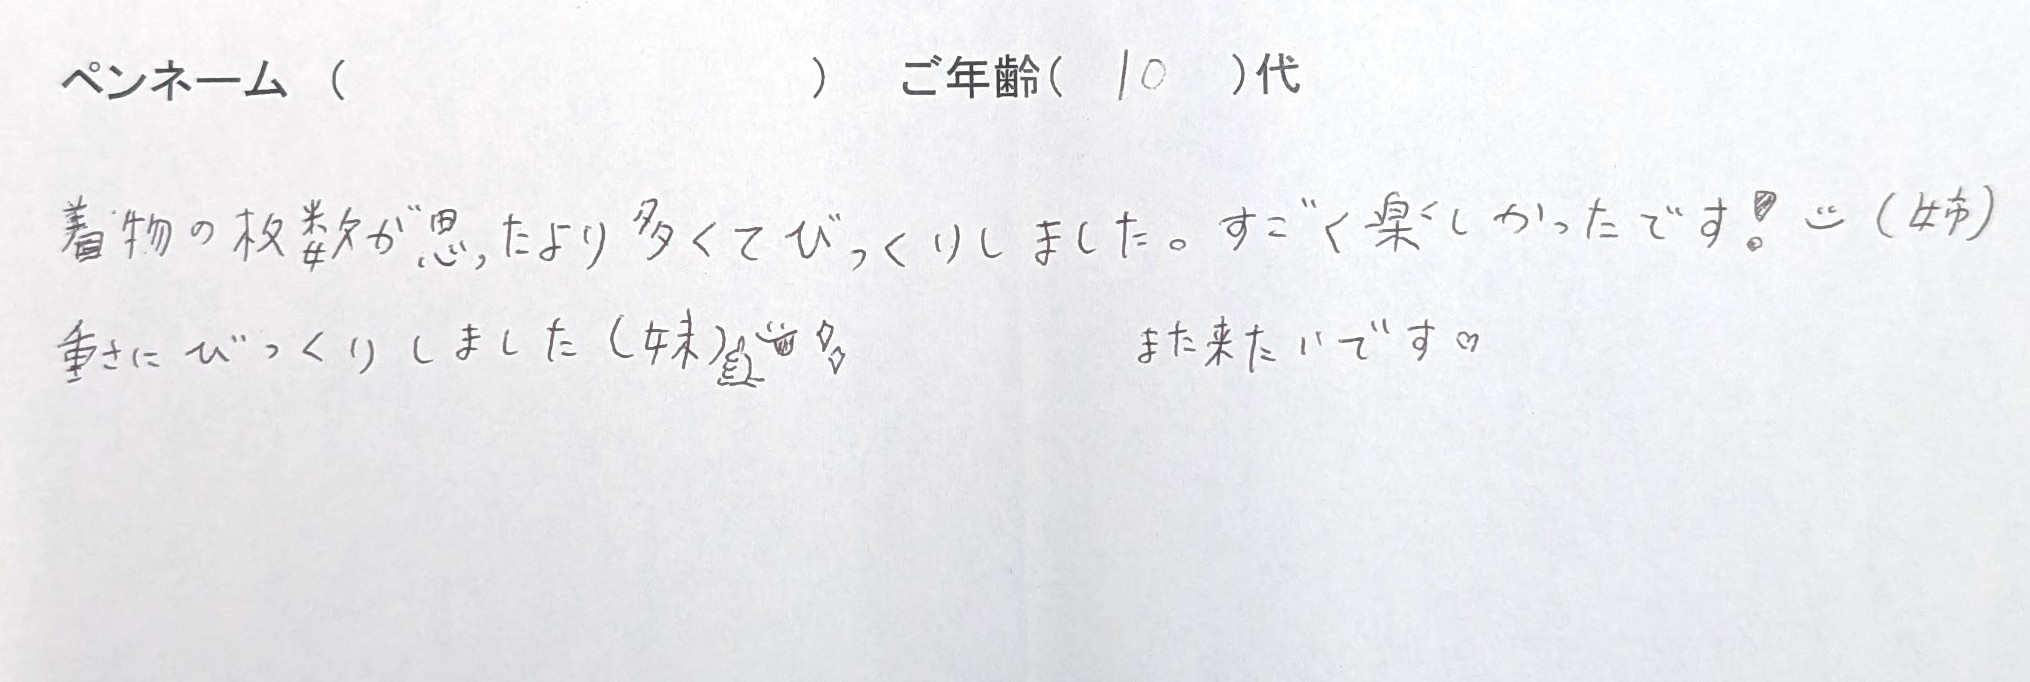 ペンネーム（　　　　　　　　　　）　ご年齢(　10　)代
着物の枚数が思ったより多くてびっくりしました。すごく楽しかったです！(姉)
重さにびっくりしました(妹)　また来たいです♡